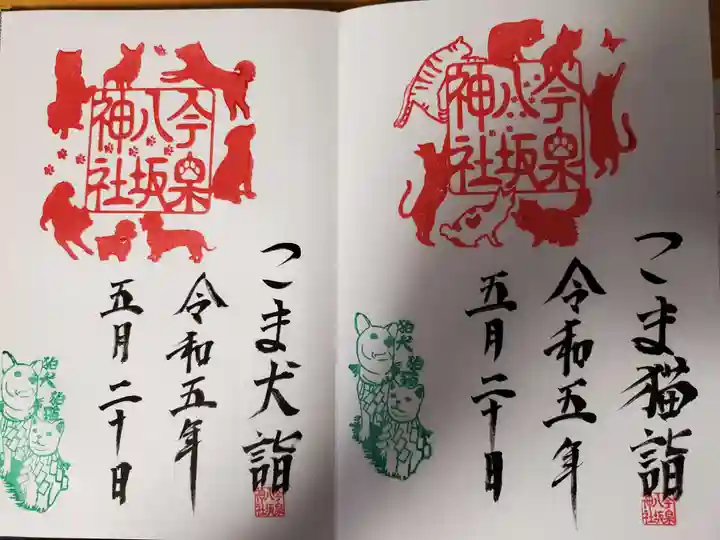 今泉
八坂
神社
こま猫詣
令和五年
五月二十日
狛犬
狛猫
今泉
八坂
神社
今泉
八坂
神社
こま犬詣
令和五年
五月二十日
狛犬
狛猫
今泉
八坂
神社